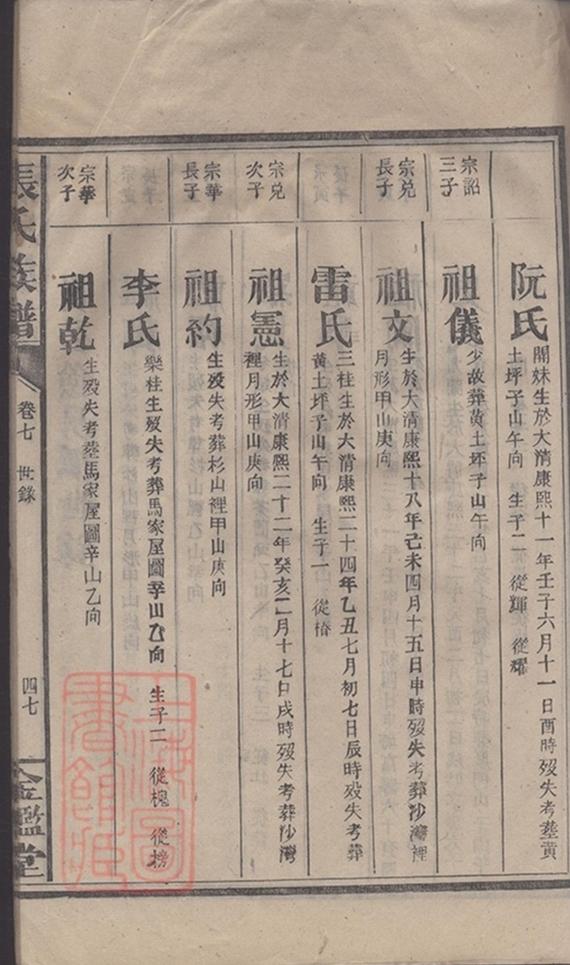 阮氏
關妹生於大清康熙十一年壬子六月十一日酉時歿失考塟黃
土坪子山午向 生子二 從輝 從耀
宗詔
三子
祖儀
少故葬黃土坪子山午向
宗兑
長子
祖文
生於大清康熙十八年己未四月十五日申時歿失考葬沙灣裡
月形甲山庚向
雷氏
三桂生於大清康熙二十四年乙丑七月初七日辰時歿失考葬
黃土坪子山午向 生子一 從椿
宗兑
次子
祖憲
生於大清康熙二十二年癸亥二月十七日戌時歿失考葬沙灣
裡月形甲山庚向
宗華
長子
祖約
生歿失考葬杉山裡甲山庚向
李氏
樂桂生歿失考葬馬家屋圖辛山乙向 生子二 從槐 從榜
宗華
次子
祖乾
生歿失考塟馬家屋圖辛山乙向
張氏族譜
卷七 世錄
四七
金鑑堂